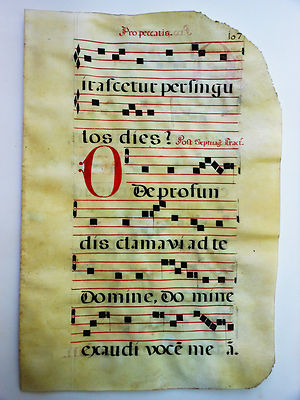 Pro peccatis. 107
irascetur per singu
los dies? Post Septuag. Tract.
De profun
dis clamavi ad te
Domine, Do mine
exaudi vocē me ā.